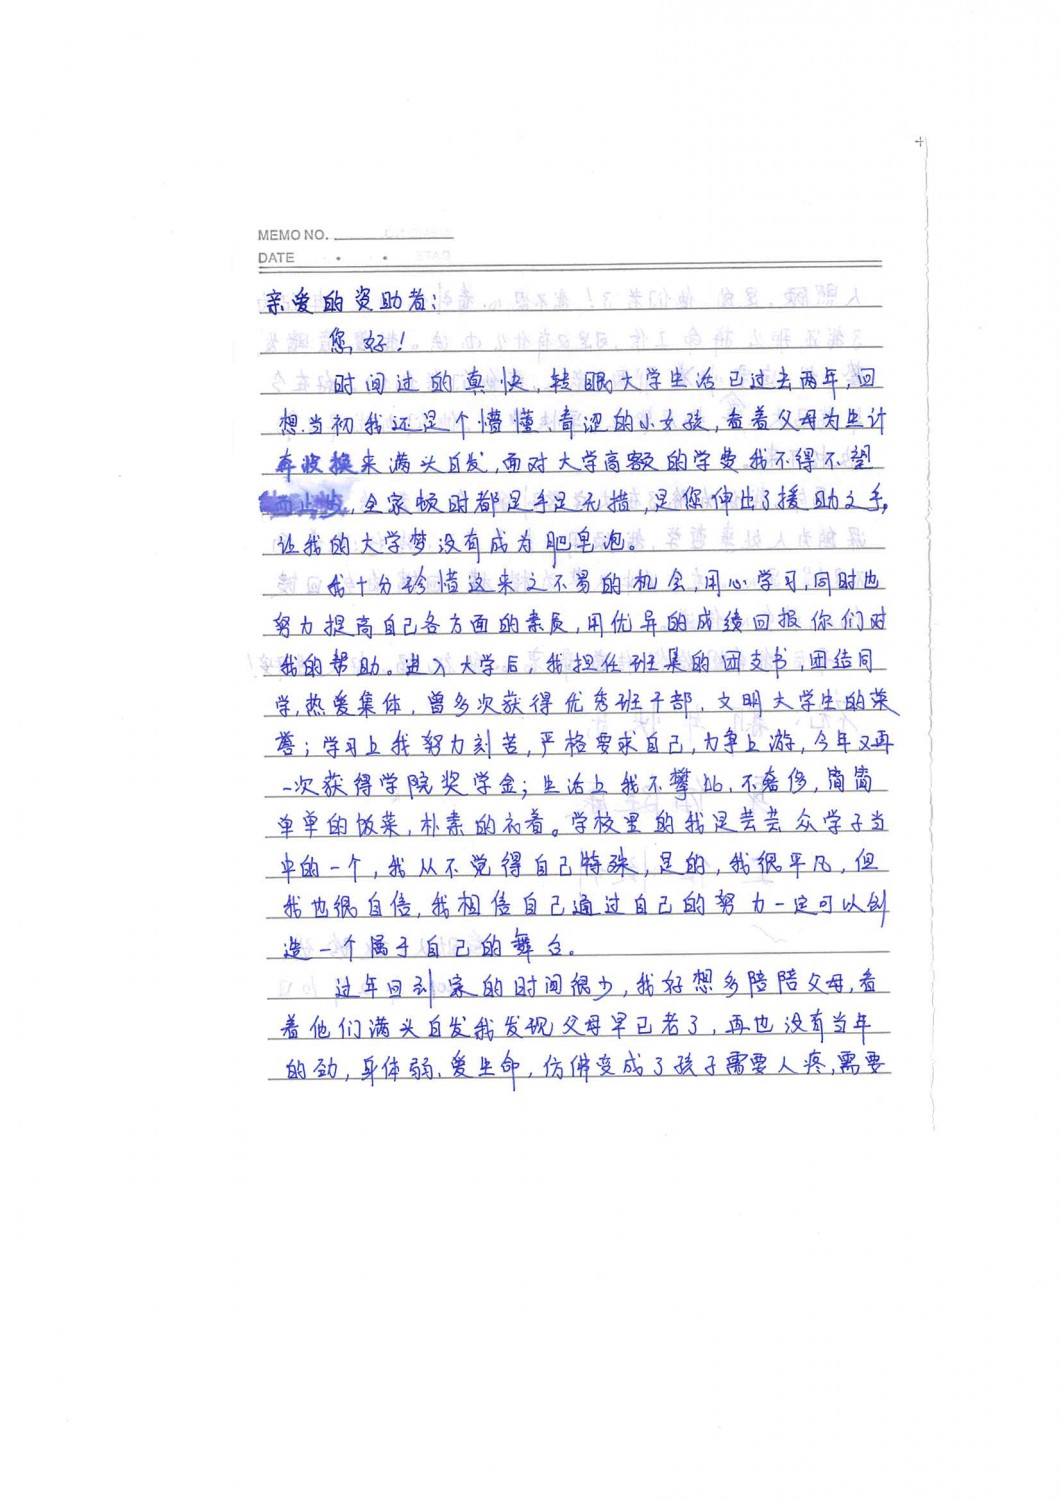 MEMO NO.
DATE
亲爱的资助者:
您好!
时间过的真快,转眼大学生活已过去两年,回
想当初我还是个懵懂、青涩的小女孩,看着父母为生计
奔波换来满头白发,面对大学高额的学费我不得不望
而止步,全家顿时都是手足无措,是您伸出了援助之手,
让我的大学梦没有成为肥皂泡。
我十分珍惜这来之不易的机会,用心学习,同时也
努力提高自己各方面的素质,用优异的成绩回报你们对
我的帮助。进入大学后,我担任班集的团支书,团结同
学,热爱集体,曾多次获得优秀班干部、文明大学生的荣
誉;学习上我努力刻苦,严格要求自己,力争上游,今年又再
一次获得学院奖学金;生活上我不攀比、不奢侈,简简
单单的饭菜,朴素的衣着。学校里的我是芸芸众学子当
中的一个,我从不觉得自己特殊,是的,我很平凡,但
我也很自信,我相信自己通过自己的努力一定可以创
造一个属于自己的舞台。
过年回到家的时间很少,我好想多陪陪父母,看
着他们满头白发我发现父母早已老了,再也没有当年
的劲,身体弱、爱生命,仿佛变成了孩子需要人疼,需要